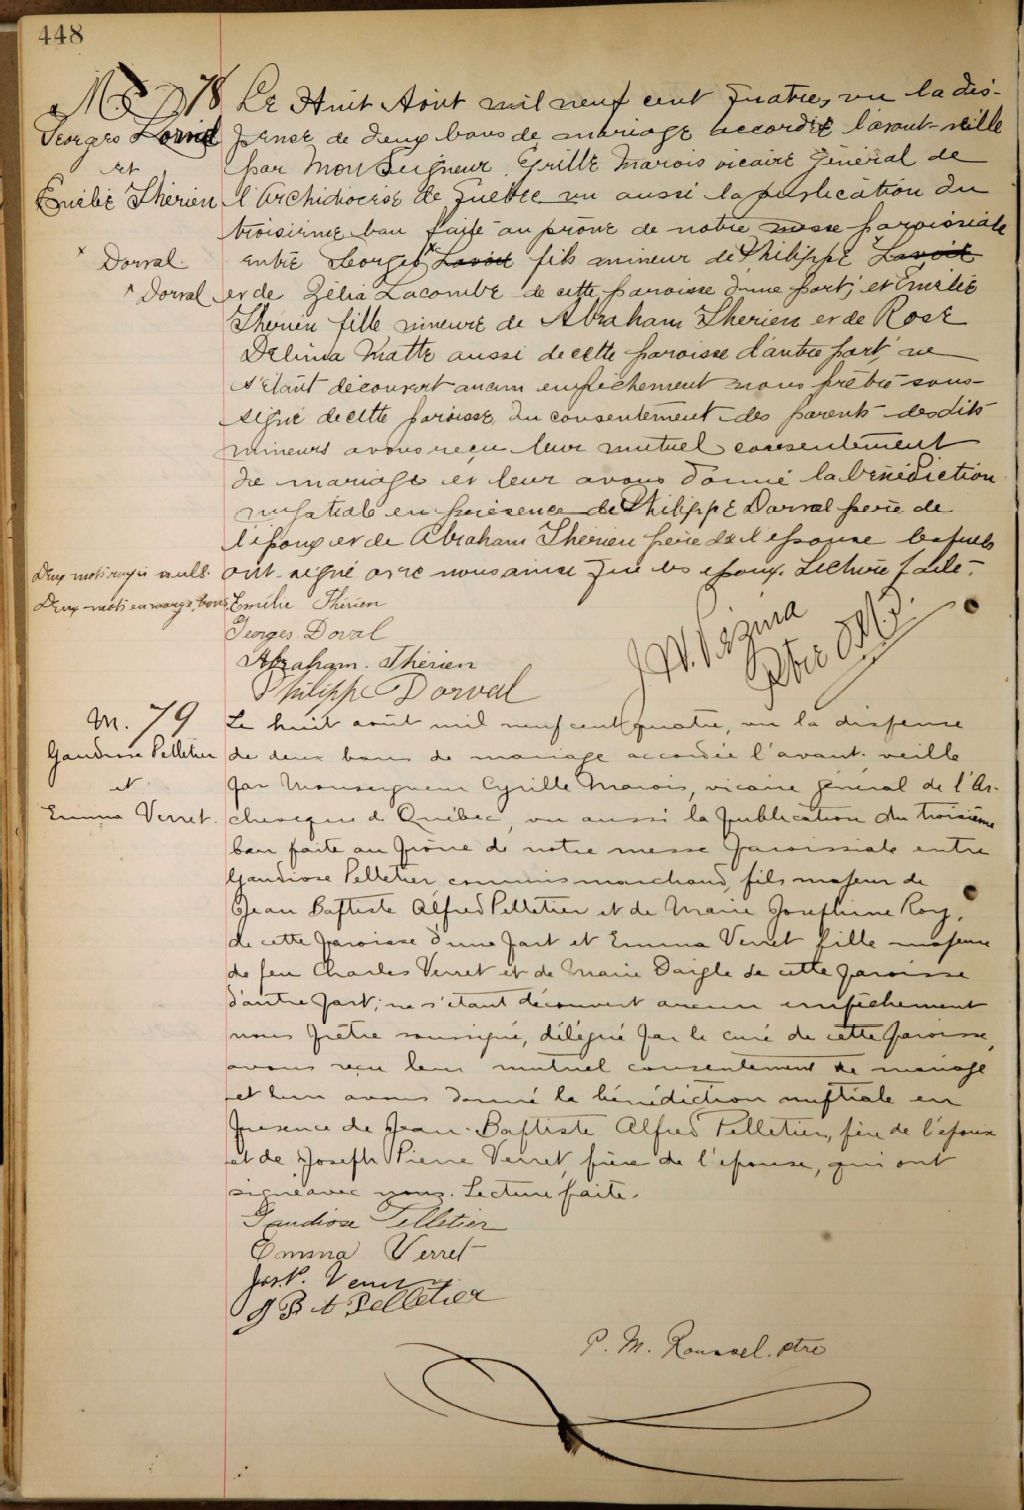 448
M. 78
Georges
et
Emélie Thérien
x Dorval.
x Dorval
Deux mots rayés nuls.
Deux mots en marge, bons.
Le Huit Août mil neuf cent quatre, vu la dis-
pense de deux bans de mariage accordée l'avant-veille
par Mon Seigneur Cyrille Marois vicaire général de
l'Archidiocèse de Québec vu aussi la publication du
troisième ban faite au prône de notre messe paroissiale
entre Georges x Lavoie fils mineur de Philippe x Lavoie
et de Zélia Lacombe de cette paroisse d'une part, et Emélie
Thérien fille mineure de Abraham Thérien et de Rose
Delima Matte aussi de cette paroisse d'autre part, ne
s'étant découvert aucun empêchement nous prêtre sous-
signé de cette paroisse, du consentement des parents desdits
mineurs avons reçu leur mutuel consentement
de mariage et leur avons donné la bénédiction
nuptiale en présence de Philippe Dorval père de
l'époux et de Abraham Thérien père de l'épouse lesquels
ont signé avec nous ainsi que les époux. Lecture faite.
Emélie Thérien
Georges Doval
Abraham. Thérien
Philippe Dorval
J W. Vézina
Ptre
M. 79
Gaudiose Pelletier
et
Emma Verret.
Le huit août mil neuf cent quatre, vu la dispense
de deux bans de mariage accordée l'avant-veille
par Monseigneur Cyrille Marois, vicaire général de l'Ar-
cheveque de Québec, vu aussi la publication du troisième
ban faite au prône de notre messe paroissiale entre
Gaudiose Pelletier, commis marchand, fils majeur de
Jean Baptiste Alfred Pelletier et de Marie Josephine Roy,
de cette paroisse d'une part et Emma Verret fille majeure
de feu Charles Verret et de Marie Daigle de cette paroisse
d'autre part; ne s'étant découvert aucun empêchement
nous prêtre soussigné, délégué par le curé de cette paroisse,
avons reçu leur mutuel consentement de mariage
et leur avons donné la bénédiction nuptiale en
présence de Jean-Baptiste Alfred Pelletier, père de l'époux
et de Joseph Pierre Verret, frère de l'épouse, qui ont
signé avec nous. Lecture faite.
Gaudiose Pelletier
Emma Verret
Jos. P. Verret
J B A Pelletier
P. M. Roussel. ptre